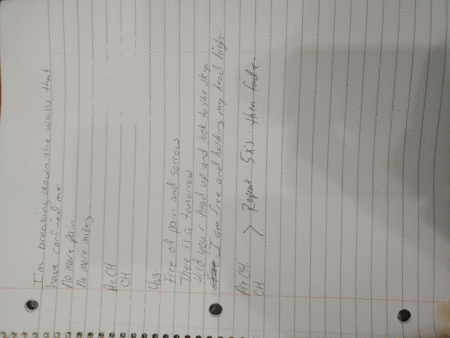 I'm breaking down the walls that
have confined me
No more pain
No more misery
Pre CH
CH
Vs.
Free of pain and sorrow
There is a tomorrow
Hold your head up and look to the sky
I am free and holding my head high.
Pre CH
CH
> Repeat 5x's then fade.